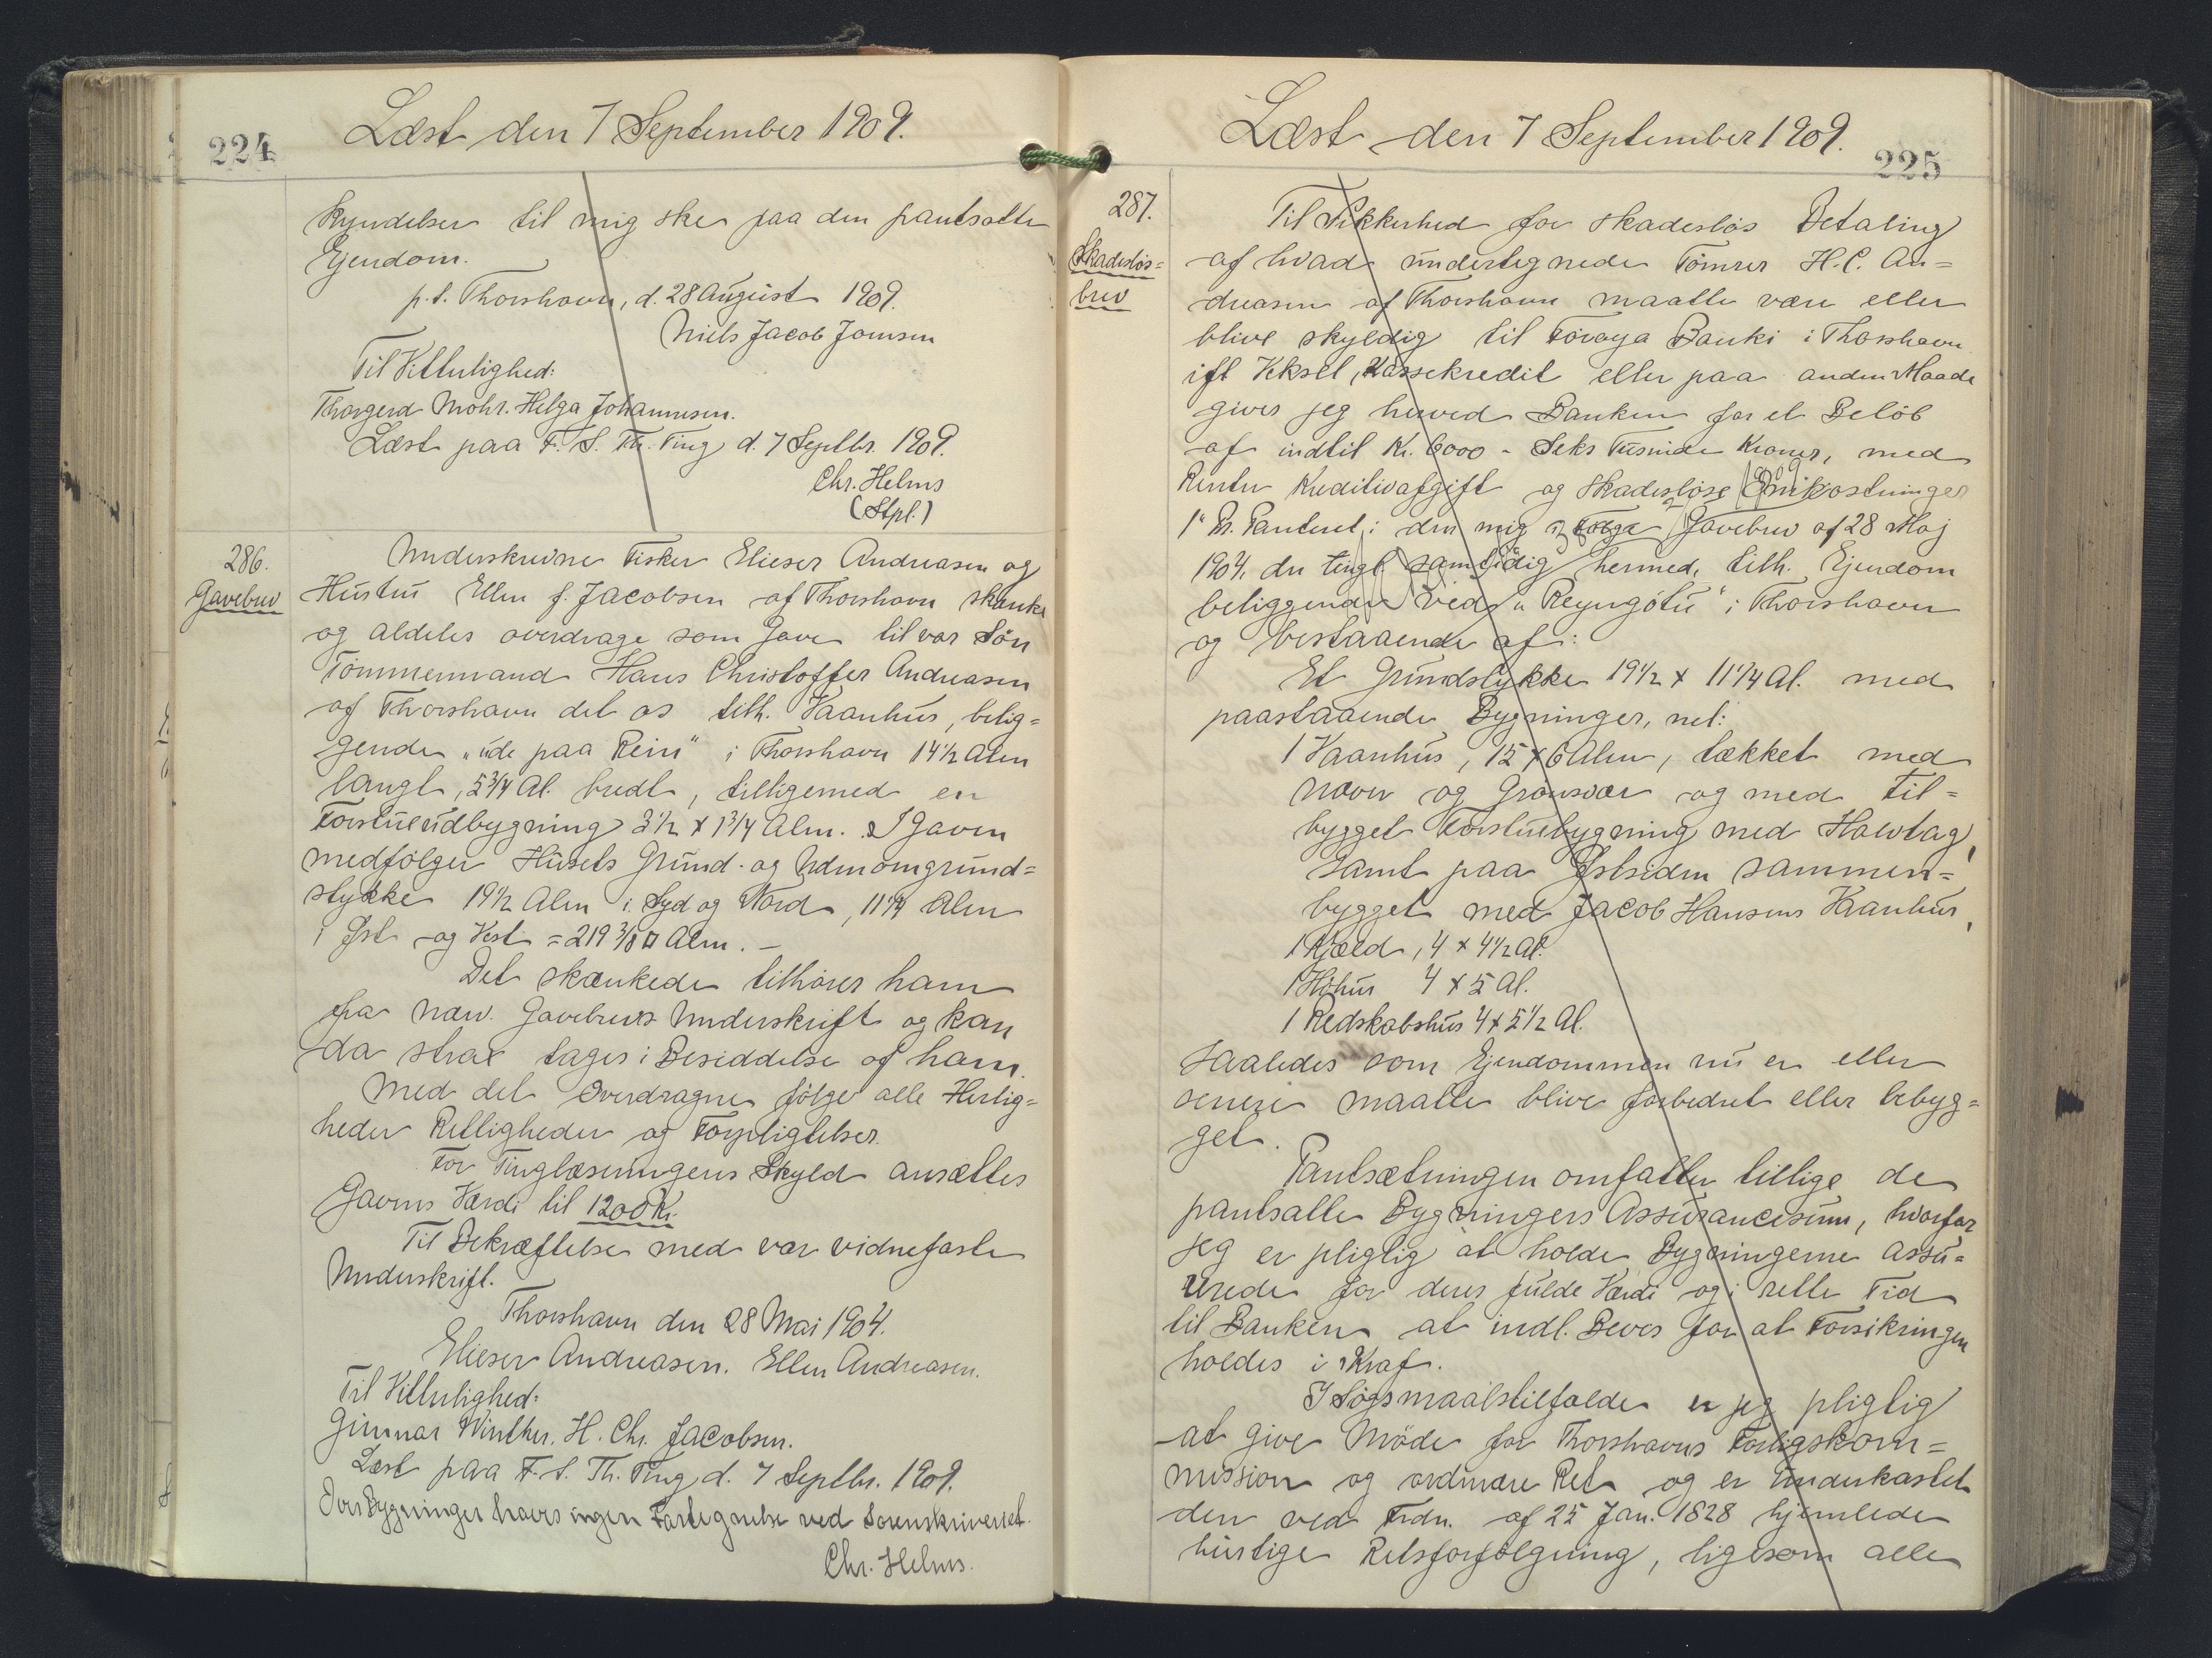 224
Læst den 7 September 1909.
kyndelser til mig ske paa den pantsatte
Ejendom.
p.t. Thorshavn, d. 28 August 1909.
Niels Jacob Joensen
Til Vitterlighed:
Thorgerd Mohr. Helga Johannesen.
Læst paa F. S. Th. Ting d. 7 Septbr. 1909.
Chr. Helms
(Stpl.)
286.
Gavebrev
Underskrevne Fisker Elieser Andreasen og
Hustru Ellen f. Jacobsen af Thorshavn skænke
og aldeles overdrage som Gave til vor Sön
Tömmermand Hans Christoffer Andreasen
af Thorshavn det os tilh. Vaanhus, belig=
gende „ude paa Reini" i Thorshavn 14 1/2 Alen
langt, 5 3/4 Al. bredt, tilligemed en
Forstueudbygning 3 1/2 x 1 3/4 Alen. I Gaven
medfölger Husets Grund- og Udenomgrund=
stykke 19 1/2 Alen i Syd og Nord, 11 1/4 Alen
i Øst og Vest = 219 3/8 □ Alen.-
Det skænkede tilhörer ham
fra nærv. Gavebrevs Underskrift og kan
da strax tages i Besiddelse af ham.
Med det Overdragne fölger alle Herlig=
heder Rettigheder og Forpligtelser.
For Tinglæsningens Skyld ansættes
Gavens Værdi til 1200 Kr.
Til Bekræftelse med vor vidnefaste
Underskrift.
Thorshavn den 28 Mai 1904.
Elieser Andreasen. Ellen Andreasen.
Til Vitterlighed:
Gunnar Winther. H. Chr. Jacobsen.
Læst paa F. S. Th. Ting d. 7 Septbr. 1909.
Over Bygninger haves ingen Fortegnelse ved Sorenskriveriet.
Chr. Helms.
Læst den 7 September 1909.
225
287.
Skadeslös=
brev
Til Sikkerhed for skadeslös Betaling
af hvad undertegnede Tömrer H. C. An=
dreasen af Thorshavn maatte være eller
blive skyldig til Föroya Banki i Thorshavn
ifl Veksel, Kassekredit eller paa anden Maade
giver jeg herved Banken for et Belöb
af indtil Kr. 6000 - Seks Tusinde Kroner, med
Renter Kreditivafgift og skadeslöse Omkostninger
1e Pr. Panteret i den mig ifölge Gavebrev af 28 Maj
1904, der tingl. samtidig hermed, tilh. Ejendom
beliggende ved „Reyngötu" i Thorshavn
og bestaaende af:
Et Grundstykke 19 1/2 x 11 1/4 Al. med
paastaaende Bygninger, nel:
1 Vaanhus, 15 x 6 Alen, tækket med
Næver og Grönsvær og med til=
bygget Forstuebygning med Halvtag,
samt paa Østsiden sammen=
bygget med Jacob Hansens Vaanhus,
1 Kjæld, 4 x 4 1/2 Al.
1 Höhus 4 x 5 Al.
1 Redskabshus 4 x 5 1/2 Al.
saaledes som Ejendommen nu er eller
senere maatte blive forbedret eller bebyg=
get.
Pantsætningen omfatter tillige de
pantsatte Bygningers Assurancesum, hvorfor
jeg er pligtig at holde Bygningerne assu=
rerede for deres fulde Værdi og i rette Tid
til Banken at indl. Bevis for at Forsikringen
holdes i Kraf.
I Sögsmaalstilfælde er jeg pligtig
at give Möde for Thorshavns Forligskom=
mission og ordinære Ret og er underkastet
den ved Frdn. af 25 Jan. 1828 hjemlede
hurtige Retsforfölgning, ligesom alle